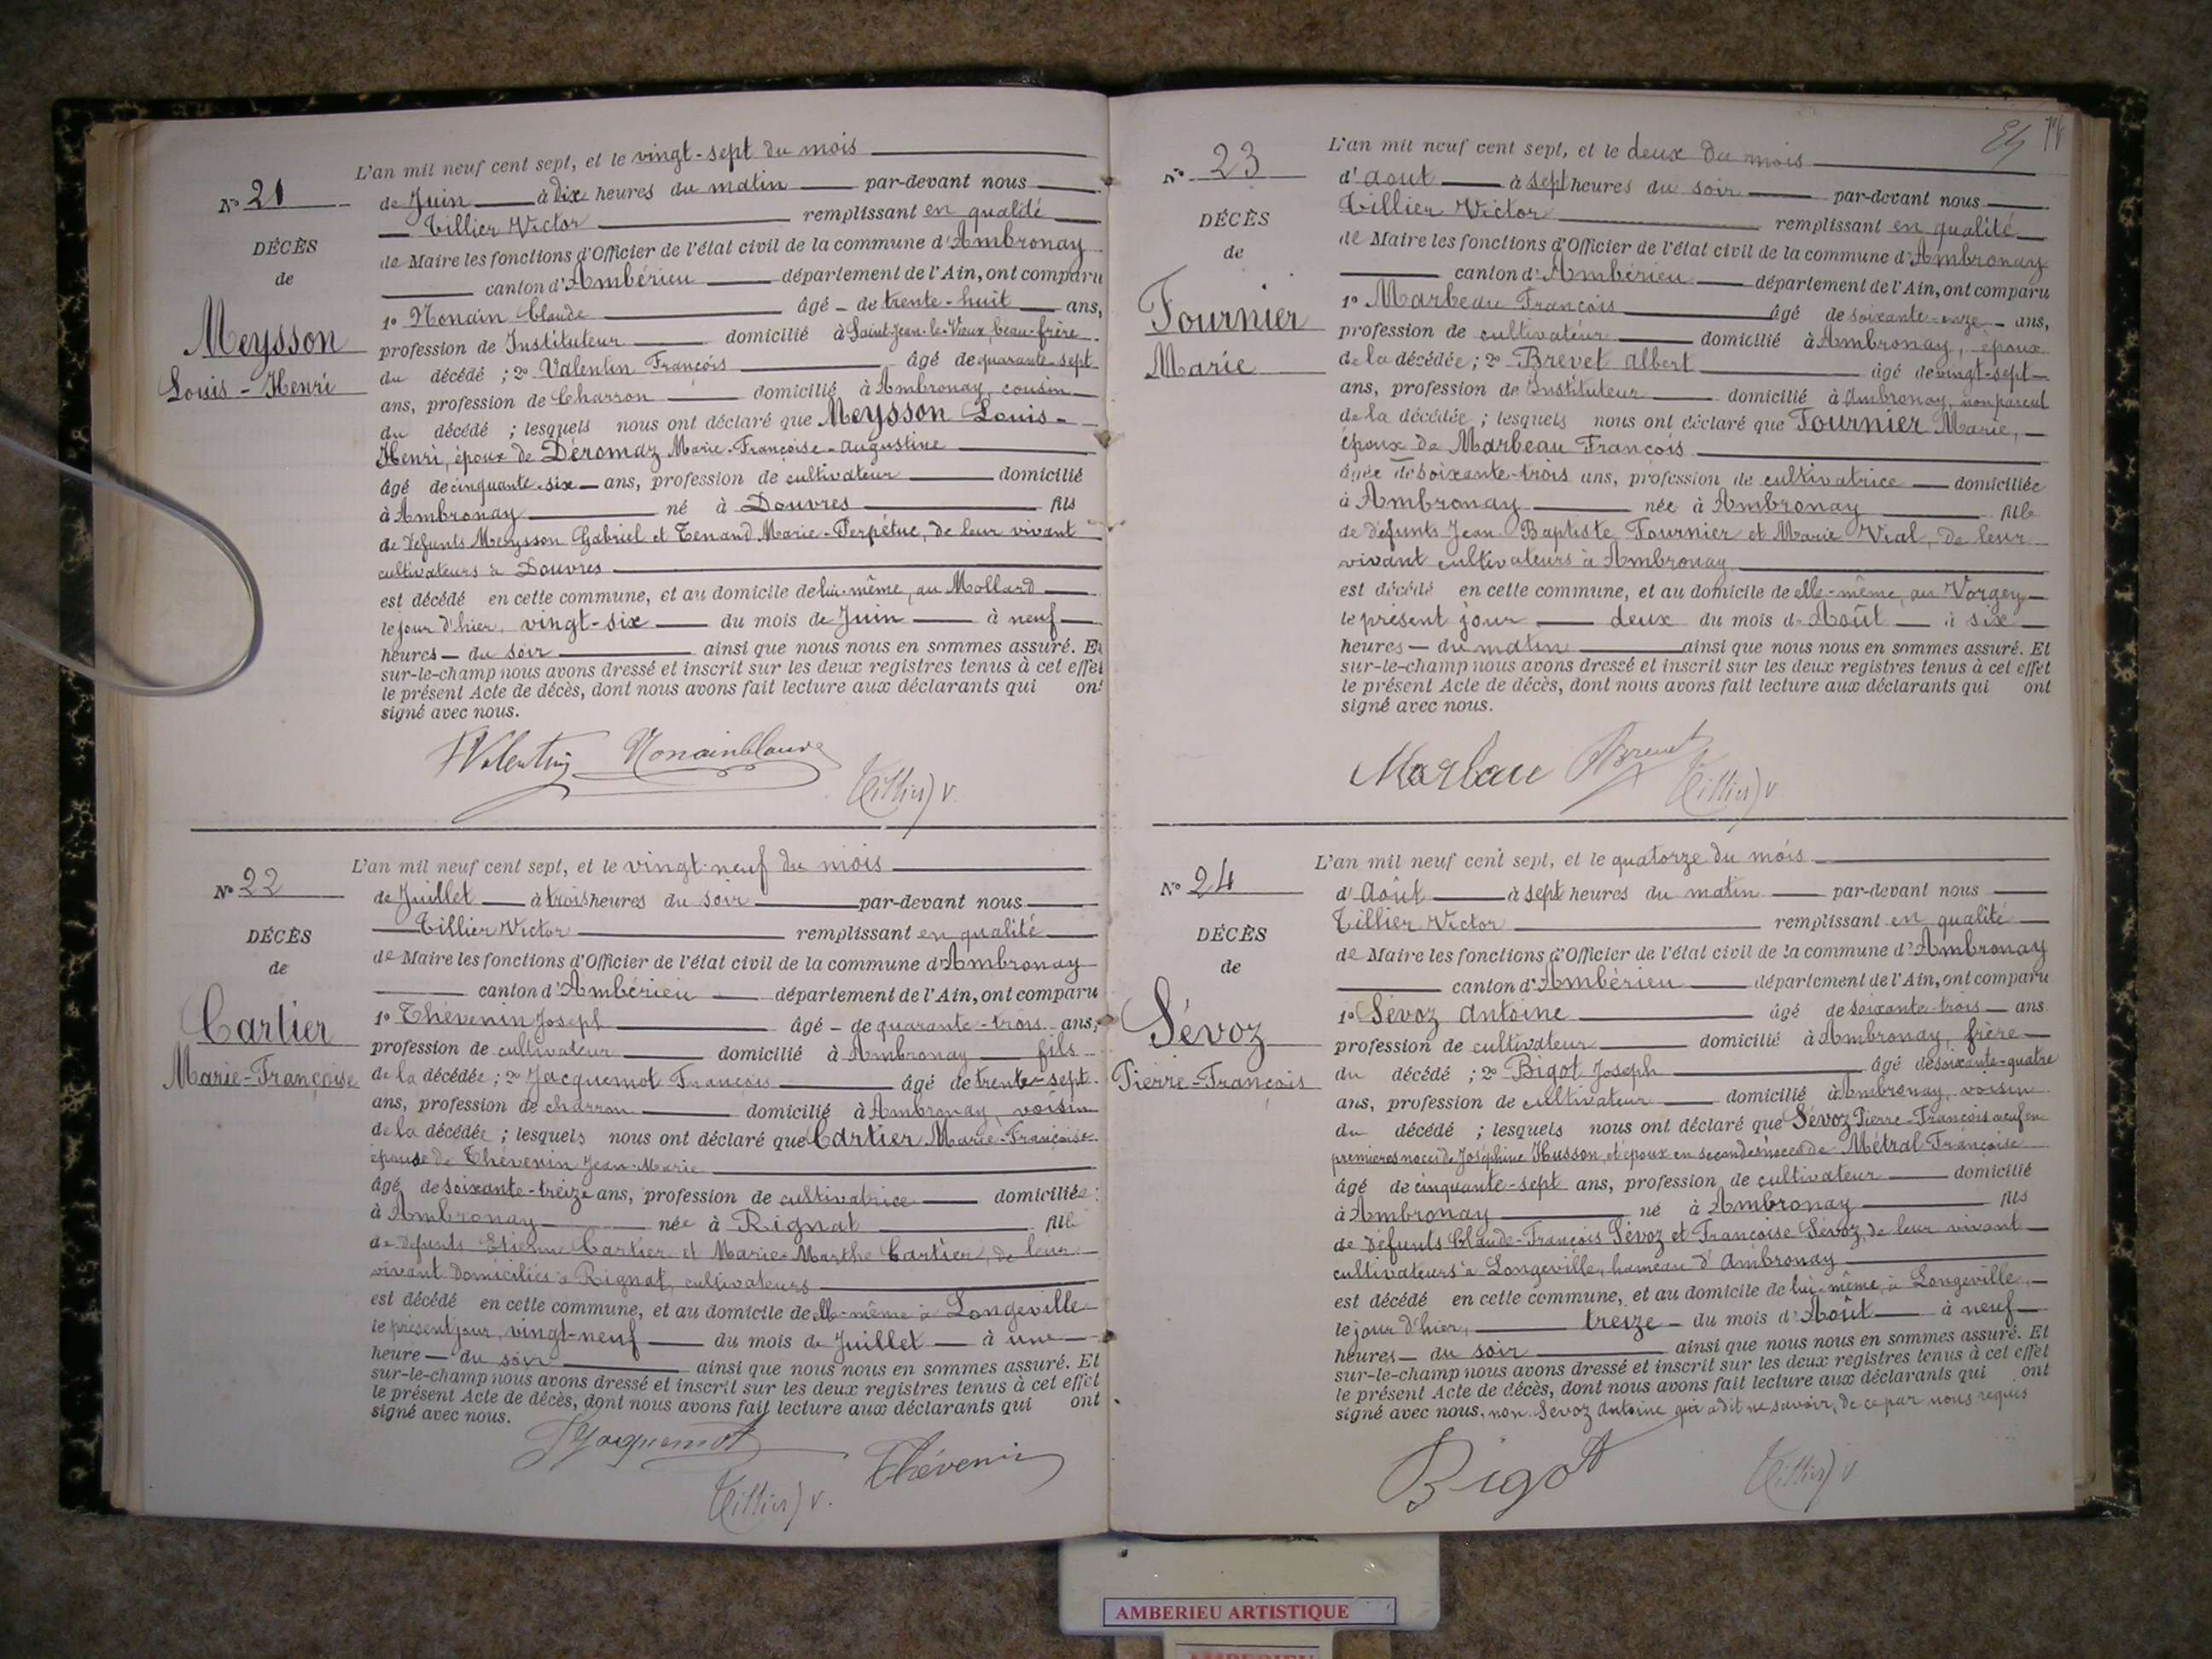 L'an mil neuf cent sept, et le vingt-sept du mois
N° 21
de Juin à dix heures du matin par-devant nous
Tillier Victor remplissant en qualité
DÉCÈS
de Maire les fonctions d'Officier de l'état civil de la commune d'Ambronay
de
canton d'Ambérieu département de l'Ain, ont comparu
1° Nonain Claude âgé de trente-huit ans,
Meysson
profession de Instituteur domicilié à Saint-Jean-le-Vieux, beau-frère
du décédé ; 2° Valentin François âgé de quarante-sept
Louis-Henri
ans, profession de Charron domicilié à Ambronay, cousin
du décédé ; lesquels nous ont déclaré que Meysson Louis-
Henri, époux de Déromaz Marie-Françoise-Augustine
âgé de cinquante-six ans, profession de cultivateur domicilié
à Ambronay né à Douvres fils
de défunts Meysson Gabriel et Tenand Marie-Perpétue, de leur vivant
cultivateurs à Douvres
est décédé en cette commune, et au domicile de lui-même, au Mollard
le jour d'hier, vingt-six du mois de Juin à neuf
heures du soir ainsi que nous nous en sommes assuré. Et
sur-le-champ nous avons dressé et inscrit sur les deux registres tenus à cet effet
le présent Acte de décès, dont nous avons fait lecture aux déclarants qui ont
signé avec nous.
Valentin Nonain Claude
Tillier V.
L'an mil neuf cent sept, et le vingt-neuf du mois
N° 22
de Juillet à trois heures du soir par-devant nous
Tillier Victor remplissant en qualité
DÉCÈS
de Maire les fonctions d'Officier de l'état civil de la commune d'Ambronay
de
canton d'Ambérieu département de l'Ain, ont comparu
1° Thévenin Joseph âgé de quarante-trois ans,
Cartier
profession de cultivateur domicilié à Ambronay fils
Marie-Françoise
de la décédée ; 2° Jacquemot François âgé de trente-sept
ans, profession de charron domicilié à Ambronay, voisin
de la décédée ; lesquels nous ont déclaré que Cartier Marie-Françoise
épouse de Thévenin Jean-Marie
âgé de soixante-treize ans, profession de cultivatrice domiciliée
à Ambronay née à Rignat fille
de défunts Etienne Cartier et Marie-Marthe Cartier, de leur
vivant domiciliés à Rignat, cultivateurs
est décédé en cette commune, et au domicile de elle-même à Longeville
le présent jour, vingt-neuf du mois de Juillet à une
heure du soir ainsi que nous nous en sommes assuré. Et
sur-le-champ nous avons dressé et inscrit sur les deux registres tenus à cet effet
le présent Acte de décès, dont nous avons fait lecture aux déclarants qui ont
signé avec nous.
Jacquemot
Thévenin
Tillier V.
L'an mil neuf cent sept, et le deux du mois
N° 23
d'aout à sept heures du soir par-devant nous
Tillier Victor remplissant en qualité
DÉCÈS
de Maire les fonctions d'Officier de l'état civil de la commune d'Ambronay
de
canton d'Ambérieu département de l'Ain, ont comparu
1° Marbeau François âgé de soixante-onze ans,
Fournier
profession de cultivateur domicilié à Ambronay, époux
Marie
de la décédée ; 2° Brevet Albert âgé de vingt-sept
ans, profession de Instituteur domicilié à Ambronay, non parent
de la décédée ; lesquels nous ont déclaré que Fournier Marie,
époux de Marbeau François
âgée de soixante-trois ans, profession de cultivatrice domiciliée
à Ambronay née à Ambronay fille
de défunts Jean Baptiste Fournier et Marie Vial, de leur
vivant cultivateurs à Ambronay
est décédé en cette commune, et au domicile de elle-même, au Vorgey
le présent jour deux du mois d'Août à six
heures du matin ainsi que nous nous en sommes assuré. Et
sur-le-champ nous avons dressé et inscrit sur les deux registres tenus à cet effet
le présent Acte de décès, dont nous avons fait lecture aux déclarants qui ont
signé avec nous.
Marbau Brevet
Tillier V
L'an mil neuf cent sept, et le quatorze du mois
N° 24
d'Août à sept heures du matin par-devant nous
Tillier Victor remplissant en qualité
DÉCÈS
de Maire les fonctions d'Officier de l'état civil de la commune d'Ambronay
de
canton d'Ambérieu département de l'Ain, ont comparu
1° Sévoz Antoine âgé de soixante-trois ans
Sévoz
profession de cultivateur domicilié à Ambronay, frère
Pierre-François
du décédé ; 2° Bigot Joseph âgé de soixante-quatre
ans, profession de cultivateur domicilié à Ambronay, voisin
du décédé ; lesquels nous ont déclaré que Sévoz Pierre-François veuf en
premières noces de Joséphine Husson, et époux en secondes noces de Métral Françoise
âgé de cinquante-sept ans, profession de cultivateur domicilié
à Ambronay né à Ambronay fils
de défunts Claude-François Sévoz et Françoise Sévoz, de leur vivant
cultivateurs à Longeville, hameau d'Ambronay
est décédé en cette commune, et au domicile de lui-même, à Longeville,
le jour d'hier, treize du mois d'Août à neuf
heures du soir ainsi que nous nous en sommes assuré. Et
sur-le-champ nous avons dressé et inscrit sur les deux registres tenus à cet effet
le présent Acte de décès, dont nous avons fait lecture aux déclarants qui ont
signé avec nous, non Sévoz Antoine qui a dit ne savoir, de ce par nous requis
Bigot
Tillier V
AMBERIEU ARTISTIQUE